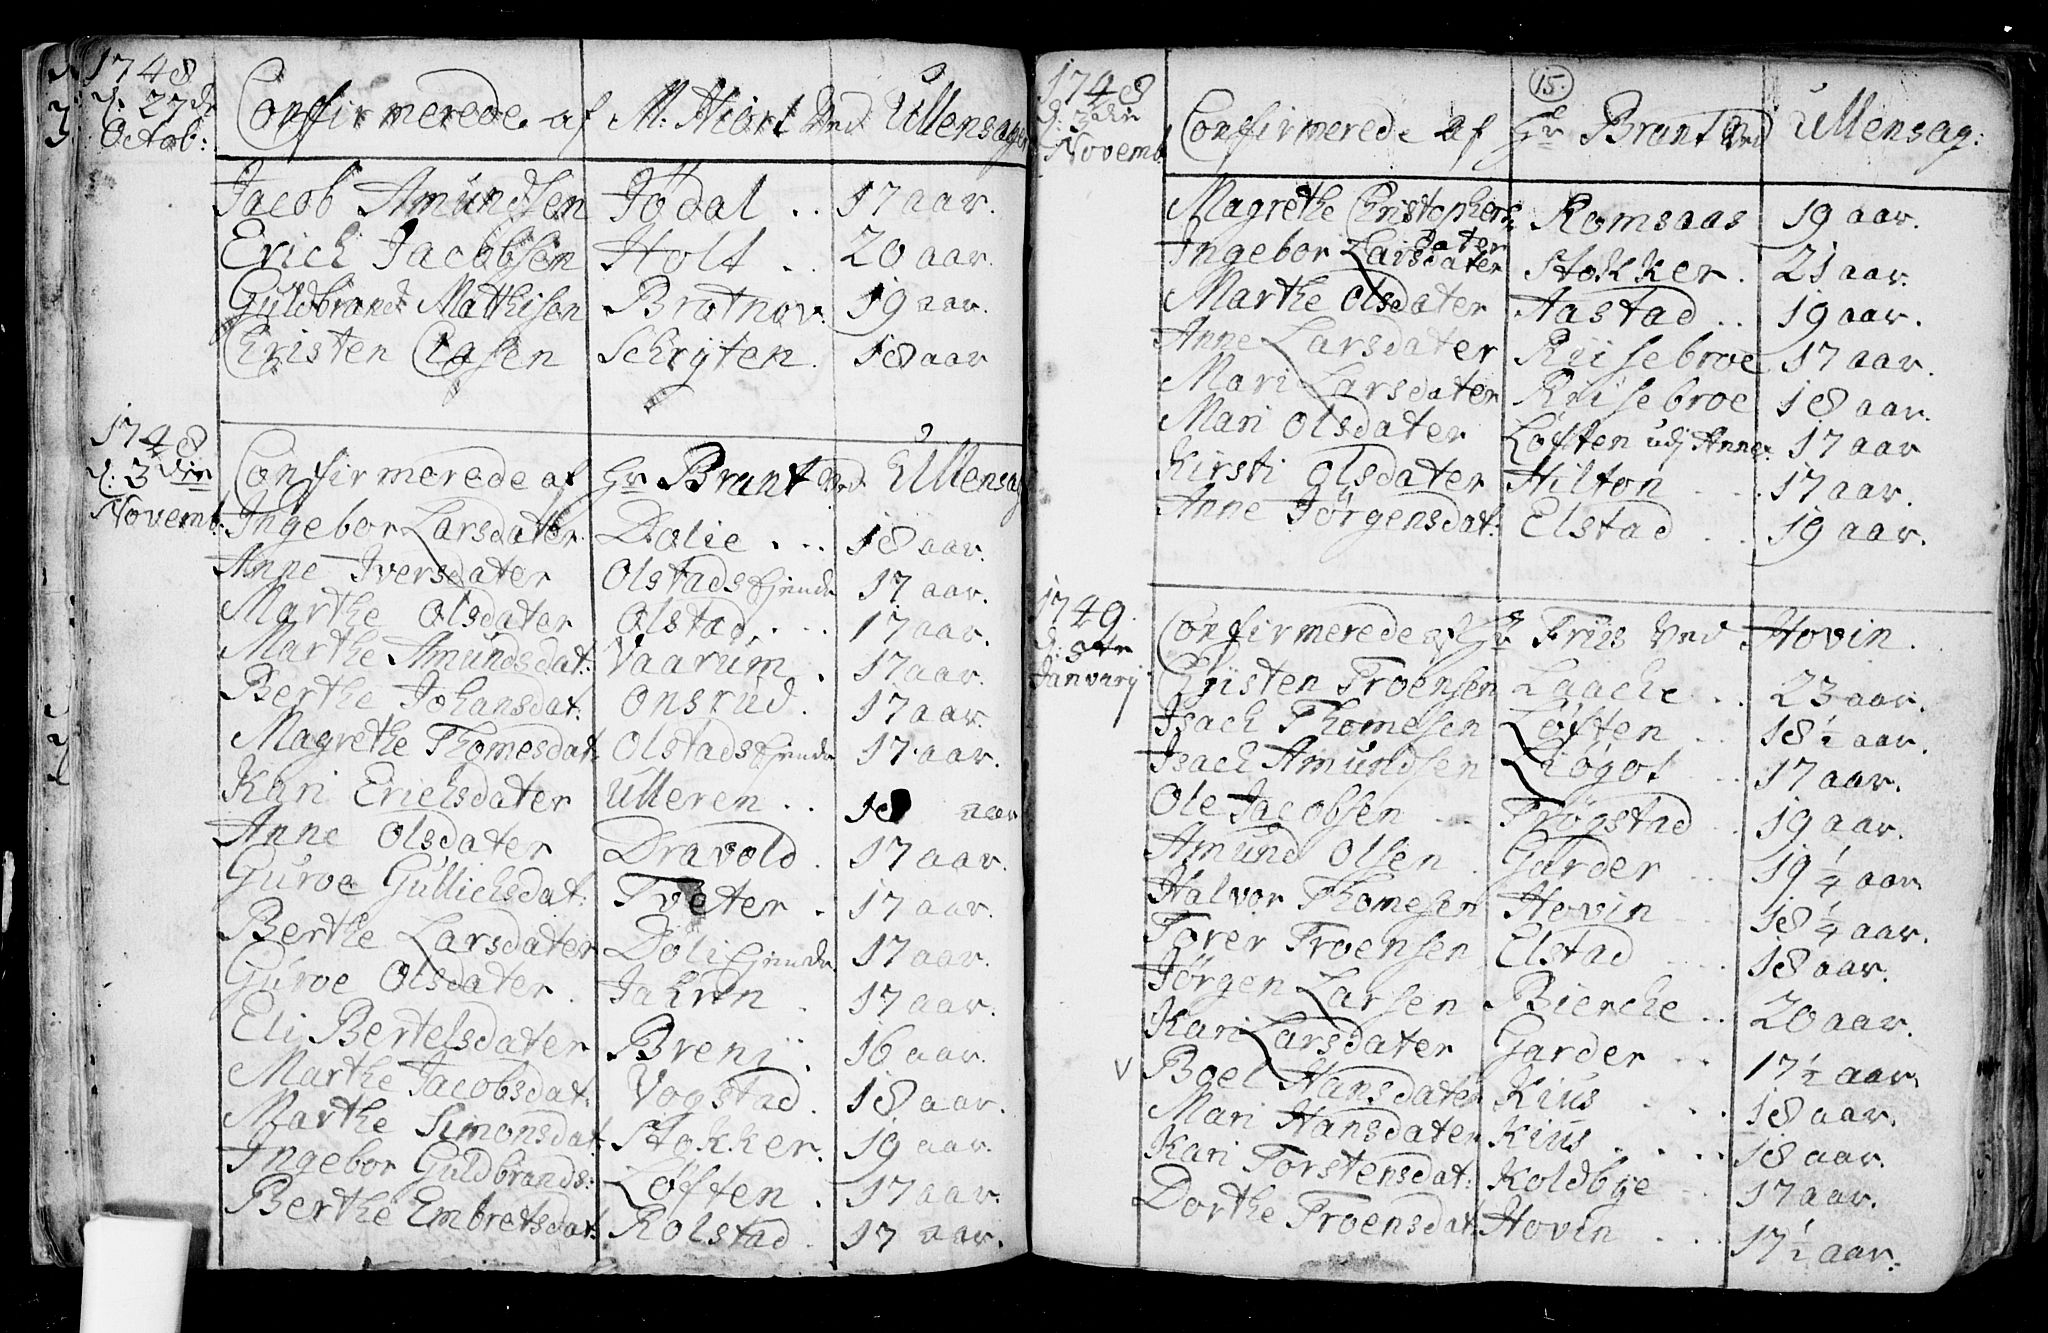 1748
d: 27de
Octob:
Confirmerede af M: Hiort Ved Ullensager
Jacob Amundsen Jödal .. 17 aar.
Erich Jacobsen Holt .. 20 aar.
Guldbrand Mathisen Bratnov. 19 aar.
Christen Clasen Schryten. 18 aar
1748
d: 3die
Novemb:
Confirmerede af Hr Brant Ved Ullensag
Ingebor Larsdater. Dølie ... 18 aar.
Anne Iversdater Olstads Ejende 17 aar.
Marthe Olsdater Olstad, ... 17 aar.
Marthe Amundsdat: Vaarum . 17 aar.
Berthe Johansdat: Onsrud. 17 aar.
Magrethe Thomesdat Olstads Ejende 17 aar.
Kari Erichsdater Ulleren .. 18 aar
Anne Olsdater Dravold . 17 aar.
Guroe Gullichsdat: Tveter . 17 aar.
Berthe Larsdater Döli Ejende 17 aar.
Guroe Olsdater. Jahrn . 17 aar.
Eli Bertelsdater Breni . 16 aar.
Marthe Jacobsdat: Vogstad . 18 aar.
Marthe Simonsdat Stokker. 19 aar.
Ingebor Guldbrands: Løften . 17 aar.
Berthe Embretsdat. Rolstad . 17 aar.
15.
1748
d: 3die
Novemb.
Confirmerede af Hr Brant Ved Ullensag:
Magrethe Christophers dater Romsaas 19 aar.
Ingebor Larsdater Stokker. 21 aar.
Marthe Olsdater Aastad .. 19 aar.
Anne Larsdater Riisebroe 17 aar.
Mari Larsdater Riisebroe 18 aar.
Mari Olsdater Løften udj Annex: 17 aar
Kirsti Olsdater Hilton .. 17 aar.
Anne Jörgensdat: Elstad .. 19 aar.
1749.
d: 9te
Januarij
Confirmerede af Hr Friis Ved Hovin.
Christen Troensen Laache .. 23 aar.
Isach Thomesen Løften .. 18 1/2 aar.
Isach Amundsen Liøgot .. 17 aar.
Ole Jacobsen .. Frögstad .. 19 aar.
Amund Olsen . Garder .. 19 1/4 aar
Halvor Thomesen Hovin .. 18 1/4 aar.
Torer Troensen Elstad .. 18 aar.
Jörgen Larsen Bierche .. 20 aar.
Kari Larsdater Garder .. 17 1/2 aar.
V Boel Hansdater Kius ... 18 aar.
Mari Hansdater Kius .... 18 aar.
Kari Torstensdat: Koldbye .. 17 aar.
Dorthe Troensdat. Hovin ... 17 1/2 aar.